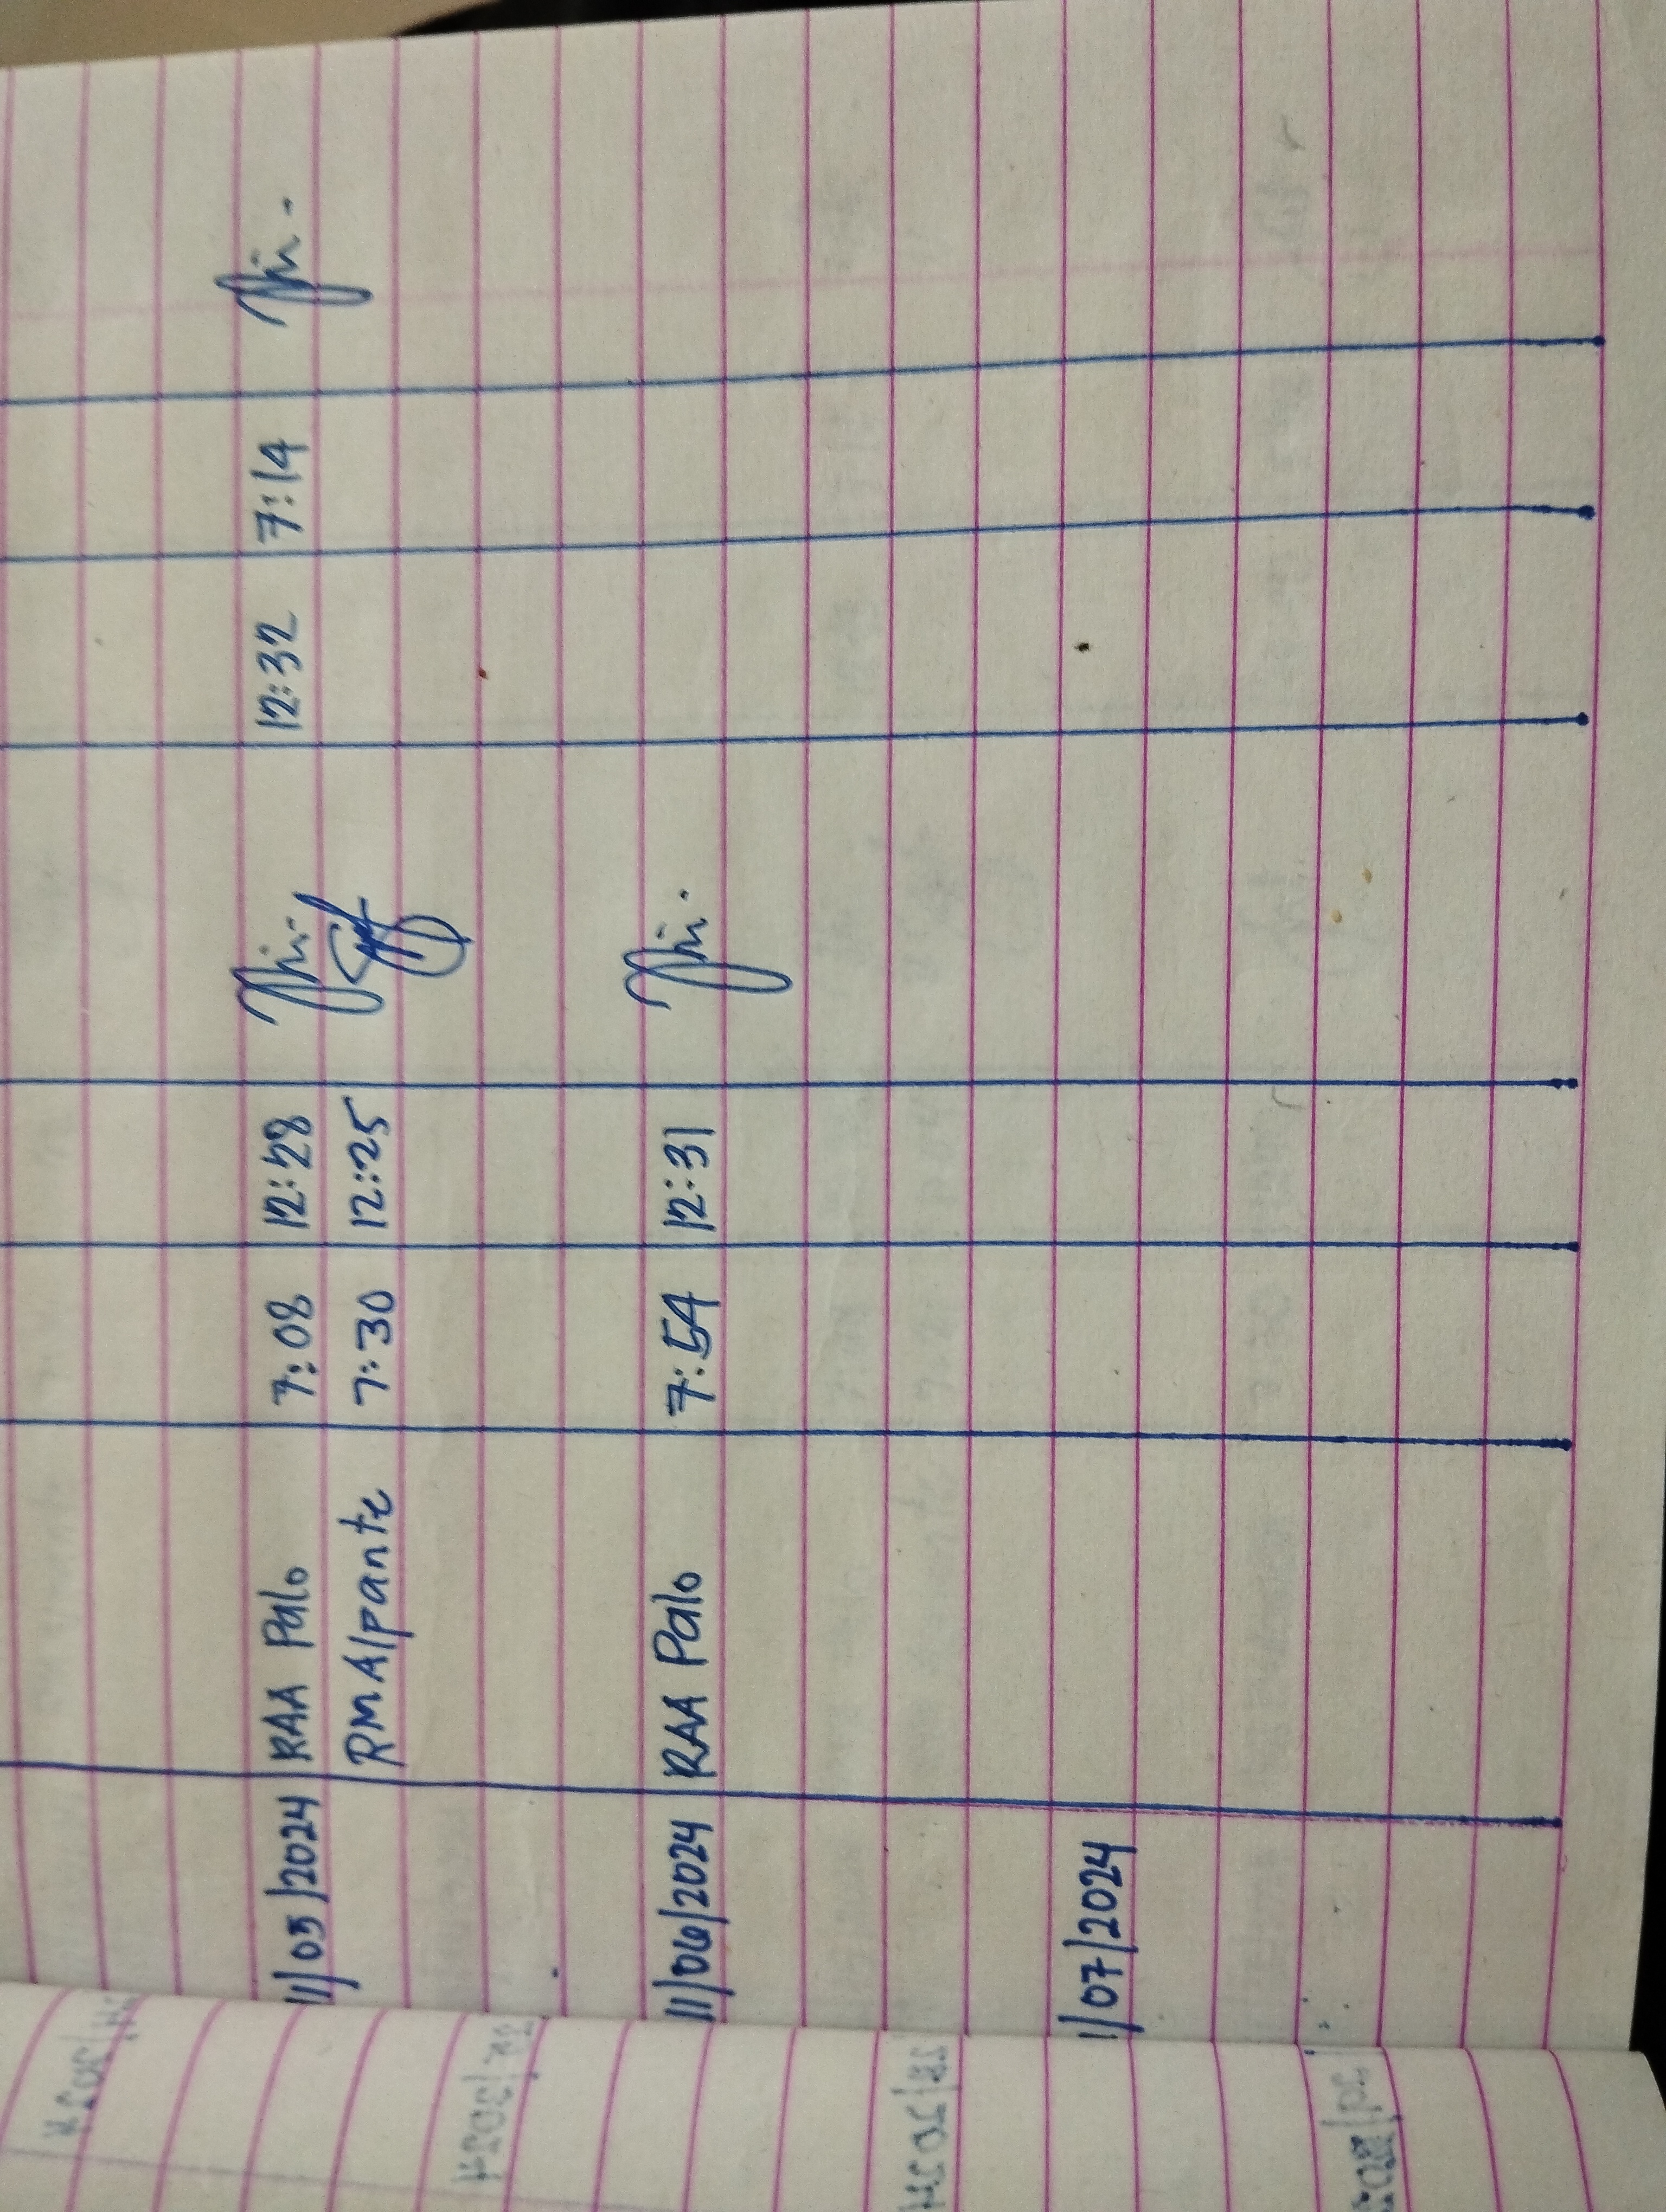 11/05/2024 RAA Palo 7:08 12:28 12:32 7:14
RMAlpante 7:30 12:25
11/06/2024 RAA Palo 7:54 12:31
11/07/2024